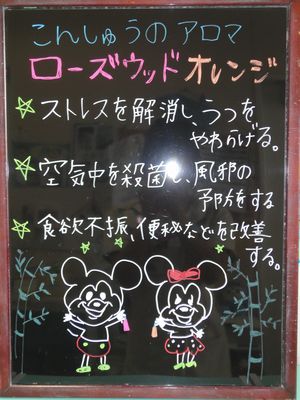 こんしゅうのアロマ
ローズウッド オレンジ
ストレスを解消し、うつを
やわらげる。
空気中を殺菌し、風邪の
予防をする
食欲不振、便秘などを改善
する。